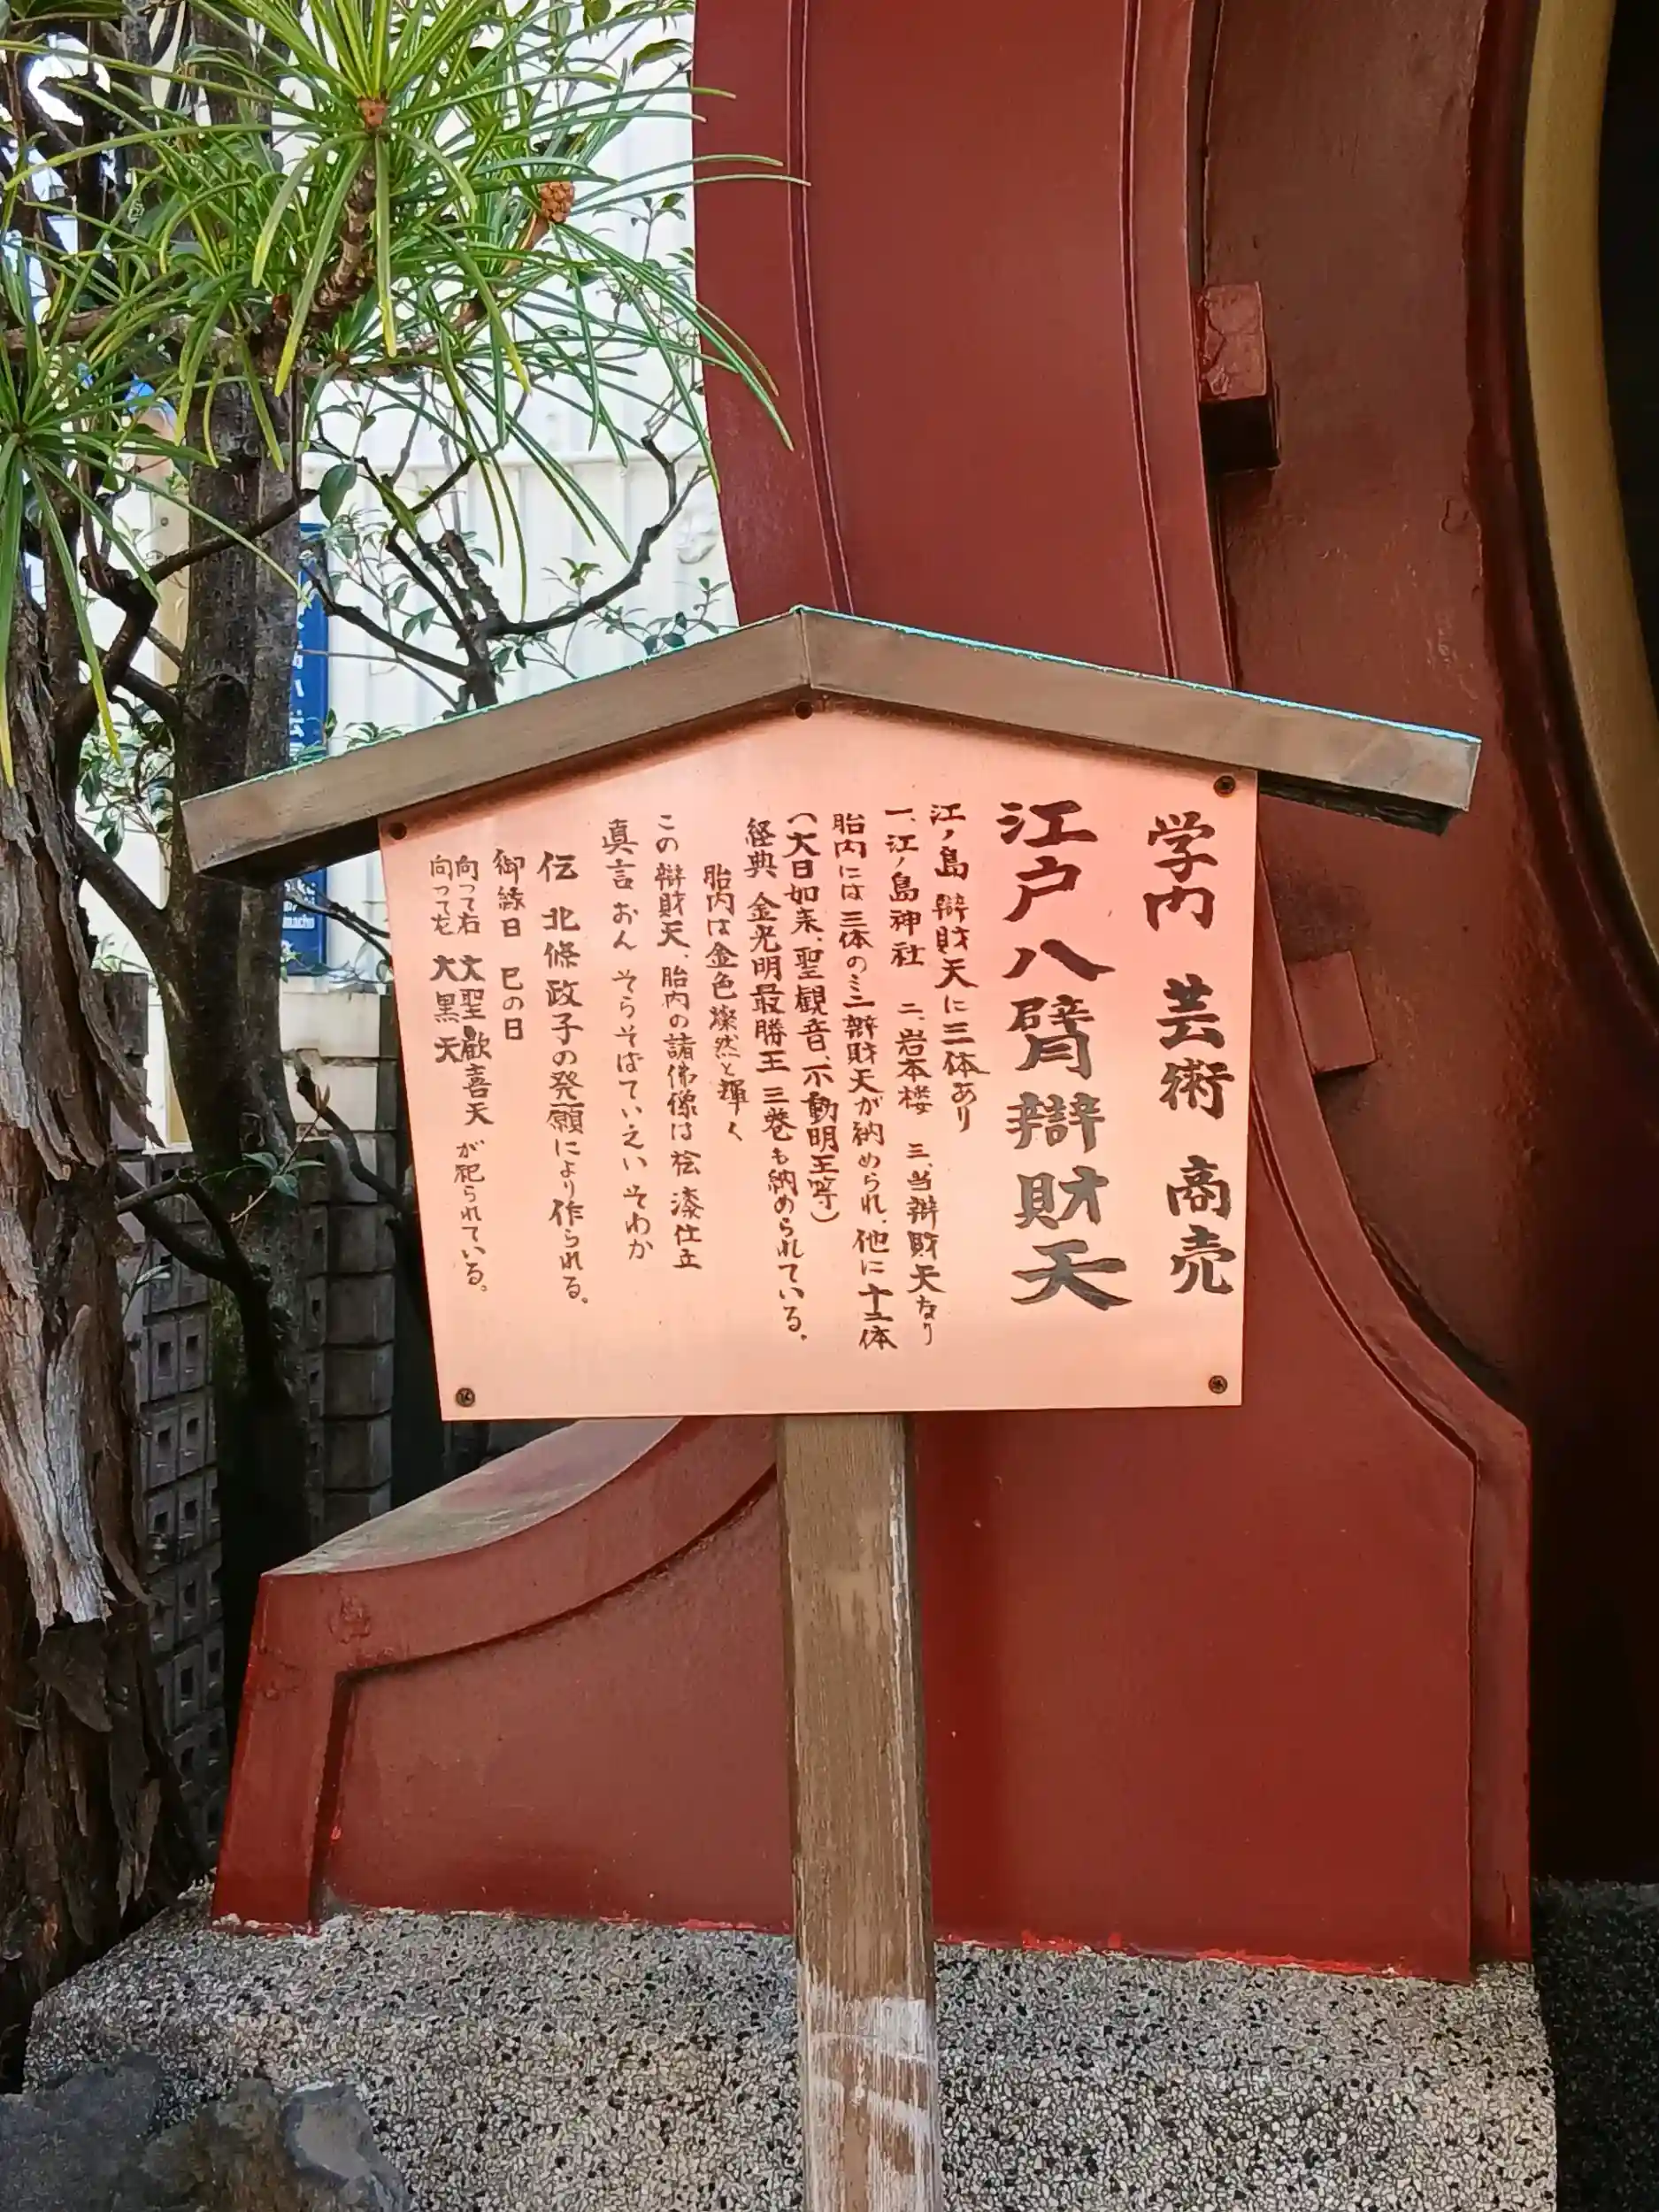 学内 芸術 商売
江戸八臂辯財天
江ノ島 辯財天に三体あり
一、江ノ島神社 二、岩本楼 三、当辯財天なり
胎内には三体のミニ辯財天が納められ、他に十三体
(大日如来、聖観音、不動明王等)
経典 金光明最勝王 三巻も納められている。
胎内は金色燦然と輝く
この辯財天、胎内の諸佛像は桧 漆仕立
真言 おん そらそばていえい そわか
伝 北條政子の発願により作られる。
御縁日 巳の日
向って右 大聖歓喜天
向って左 大黒天 が祀られている。